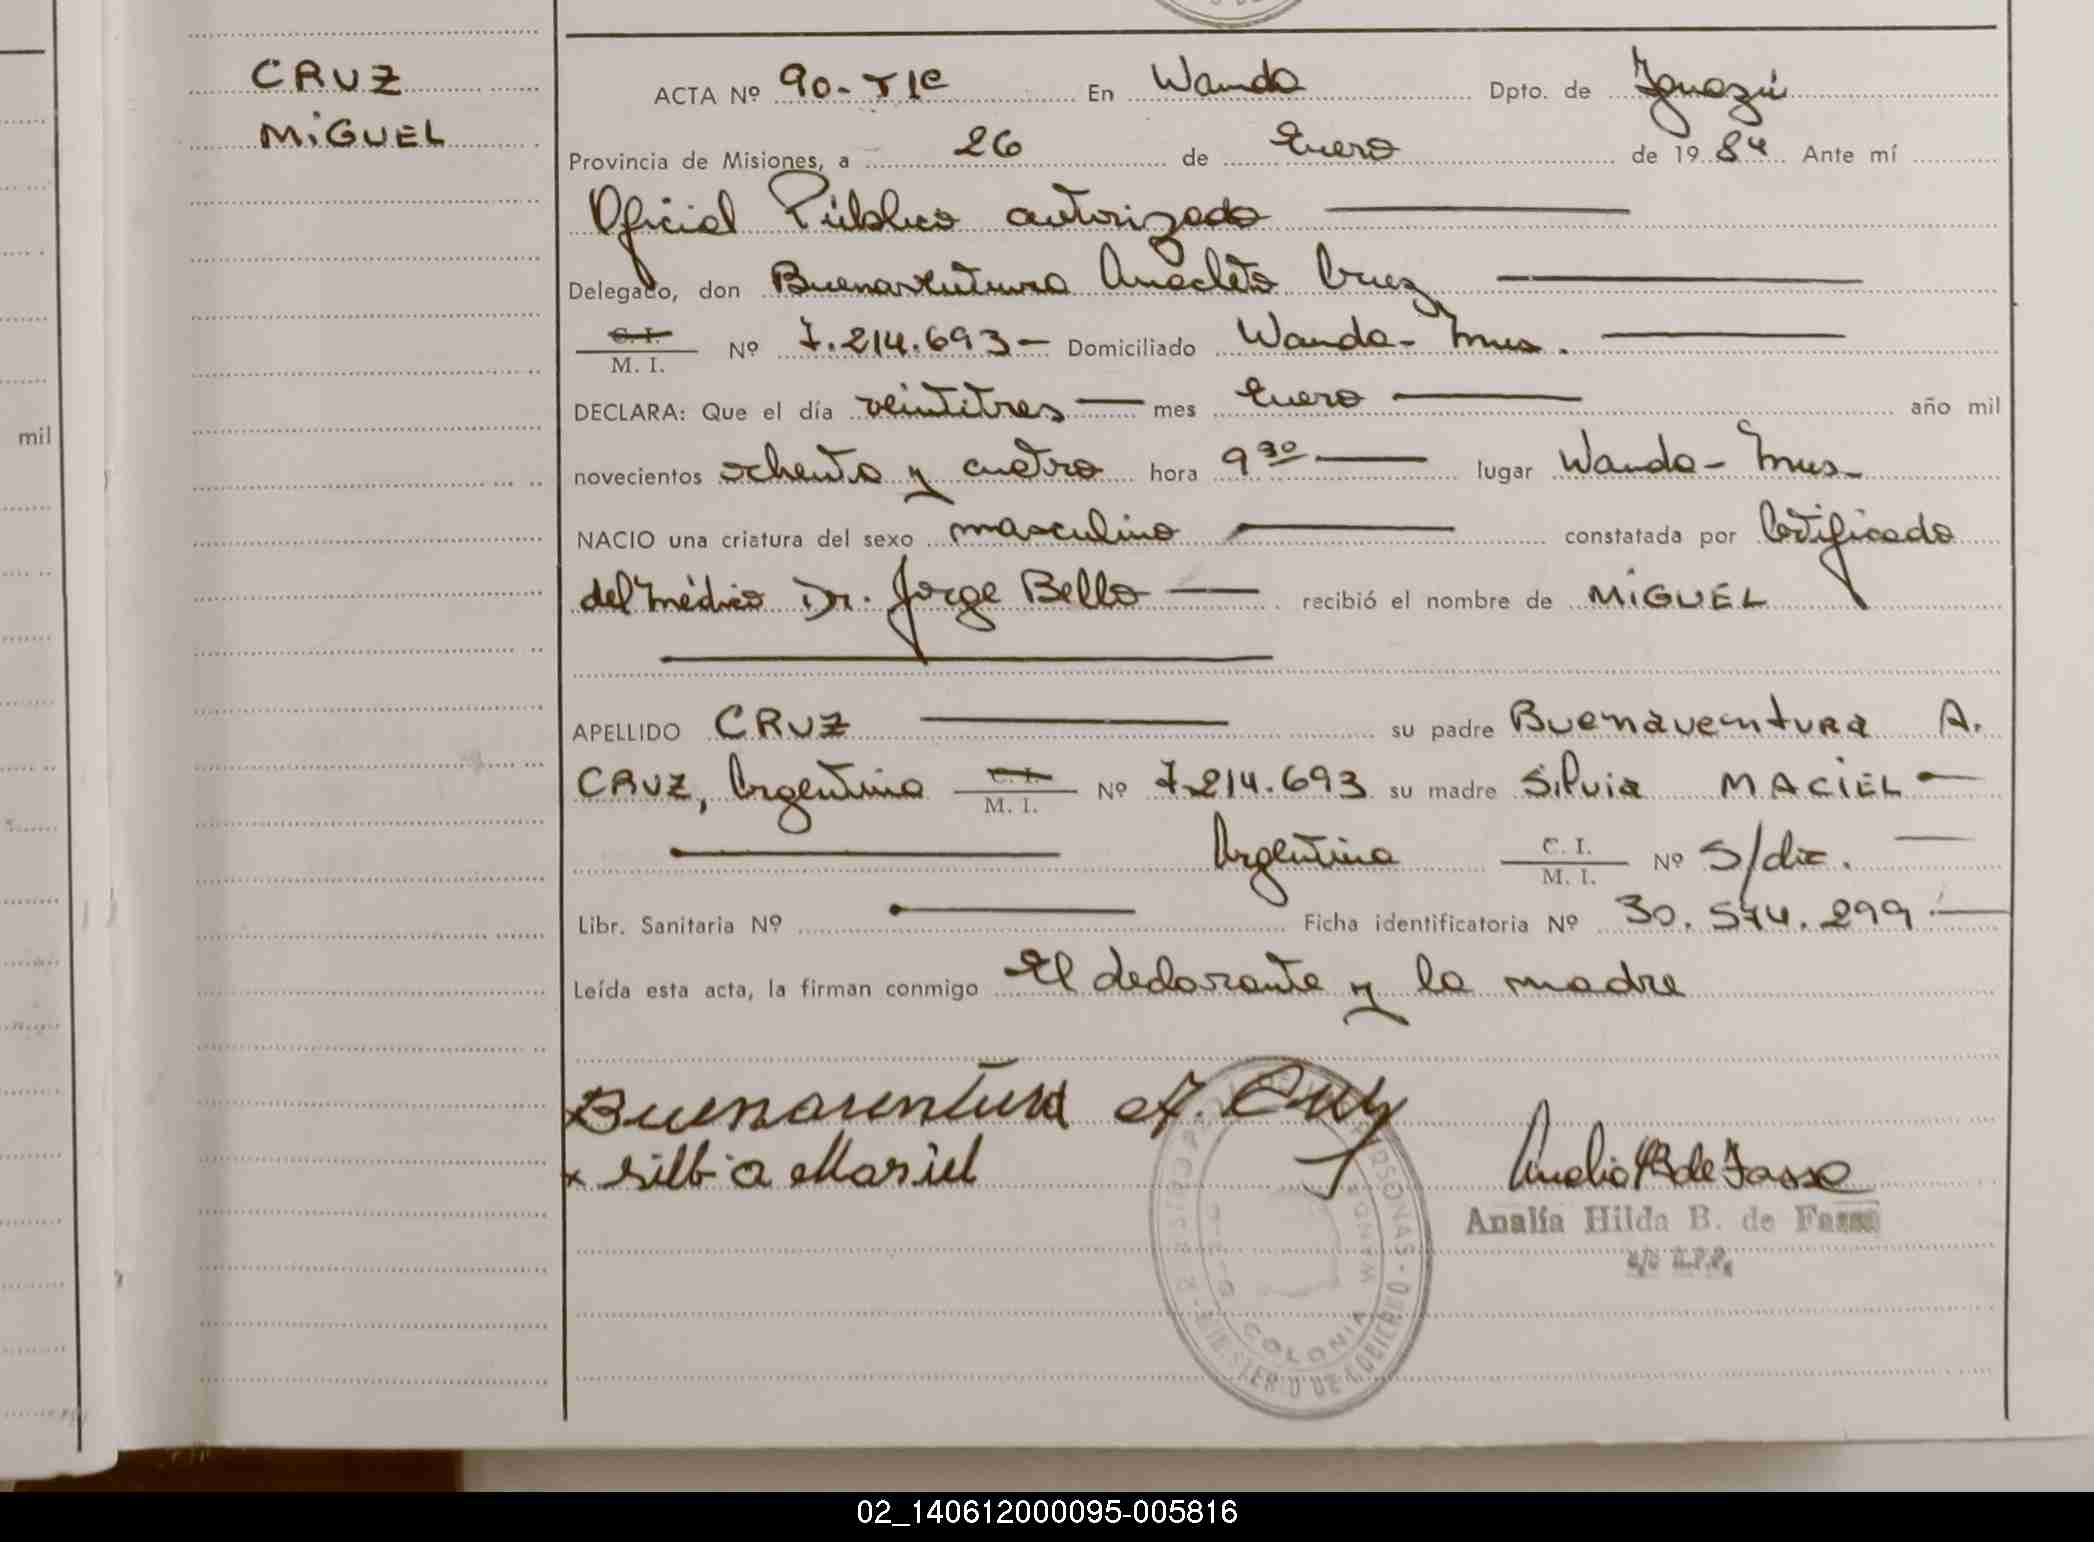 CRUZ
MiGUEL
ACTA Nº 90- T 1c En Wanda Dpto. de Iguazú
Provincia de Misiones, a 26 de Enero de 1984 Ante mí
Oficial Público autorizado
Delegado, don Buenaventura Anacleto Cruz
C. I.
M. I. Nº 7.214.693 - Domiciliado Wanda - Mnes.
DECLARA: Que el día veintitres mes Enero año mil
novecientos ochenta y cuatro hora 9 30 lugar Wanda - Mnes
NACIO una criatura del sexo masculino constatada por Certificado
del médico Dr. Jorge Bello recibió el nombre de MiGUEL
APELLIDO CRUZ su padre Buenaventura A.
CRUZ, Argentino C. I. M. I. Nº 7.214.693 su madre Silvia MACiEL
Argentina C. I. M. I. Nº S/dic.
Libr. Sanitaria Nº Ficha identificatoria Nº 30.574.299.
Leída esta acta, la firman conmigo El declarante y la madre
x Buenaventura A. Cruz
x silbia Masiel
Analía Hilda B. de
COLONIA WANDA
MINISTERIO DE GOBIERNO
mil
02_140612000095-005816